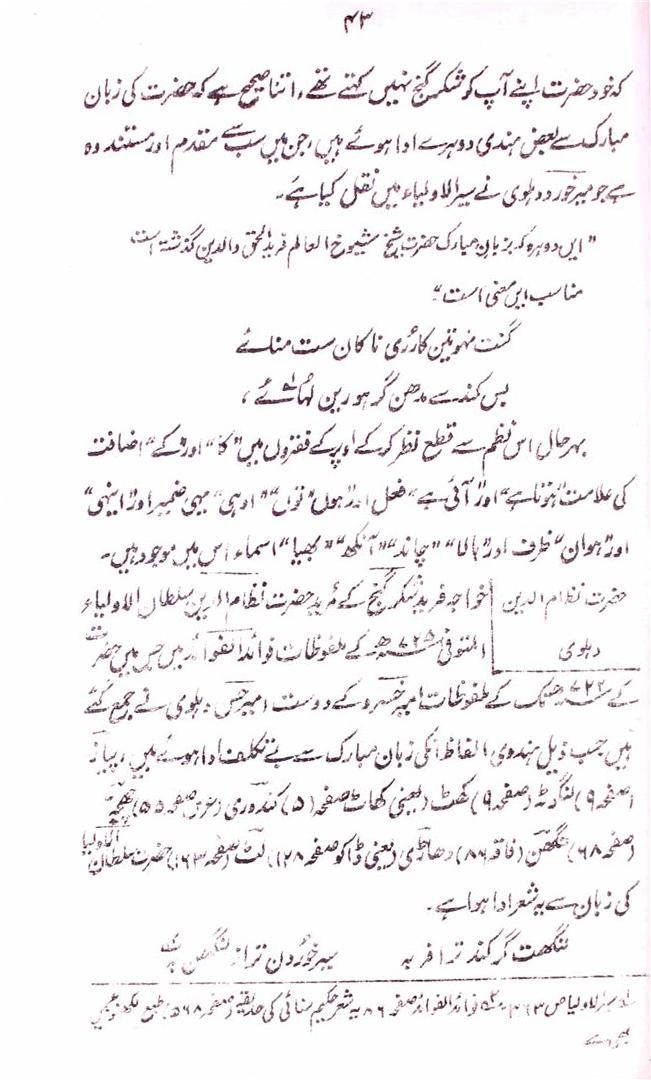 ۴۳
کہ خود حضرت اپنے آپ کو شکر گنج نہیں کہتے تھے، اتنا صحیح ہے کہ حضرت کی زبان
مبارک سے بعض ہندی دوہرے ادا ہوئے ہیں، جن میں سب سے مقدم اور مستند وہ
ہے جو میر خورد دہلوی نے سیر الاولیاء میں نقل کیا ہے۔
"ایں دوہرہ کہ بزبان مبارک حضرت شیخ شیوخ العالم فرید الحق والدین گذشتہ است
مناسب ایں معنی است"
کنت نہوتین کارڑی نا کان ست منائے
بس کندے مدھن گر ہورین لہائے،
بہرحال اس نظم سے قطع نظر کر کے اوپر کے فقروں میں "کا" اور "کے" اضافت
کی علامت "ہونا ہے" اور "آئی ہے" فعل اور "ہوں" "توں" اوہی" یہی ضمیر اور "اینہی"
اور "ہوان" ظرف اور "بالا" "چاند" "آنکھ" "بھیا" اسماء اس میں موجود ہیں۔
حضرت نظام الدین دہلوی
خواجہ فرید شکر گنج کے مرید حضرت نظام الدین سلطان الاولیاء
المتوفی ۷۲۵ھ کے ملفوظات فوائد الفواد میں جس میں حضرت
کے ۷۲۲ھ تک کے ملفوظات امیر خسرو کے دوست امیر حسن دہلوی نے جمع کئے
ہیں حسب ذیل ہندوی الفاظ انکی زبان مبارک سے بے تکلف ادا ہوئے ہیں، پیاز
(صفحہ ۹) لنگوٹہ (صفحہ ۹) کھٹ (یعنی کھاٹ صفحہ ۵) کندوری ( صفحہ ۵۵) چھجہ
(صفحہ ۶۸) لنگھن (فاقہ ۸۶) دھاڑی (یعنی ڈاکو صفحہ ۱۲۸) لٹ (صفحہ ۱۶۳) حضرت سلطان الاولیا
کی زبان سے یہ شعر ادا ہوا ہے۔
لنگہت گر کند ترا فربہ
سیر خوردن ترا ز لنگھن بہ
لہ سیر الاولیا ص ۳۶۳ ۲ہ فوائد الفواد صفحہ ۸۶ یہ شعر حکیم سنائی کی حدیقہ (صفحہ ۵۶۸ طبع لکھنؤ) میں
بھی ہے